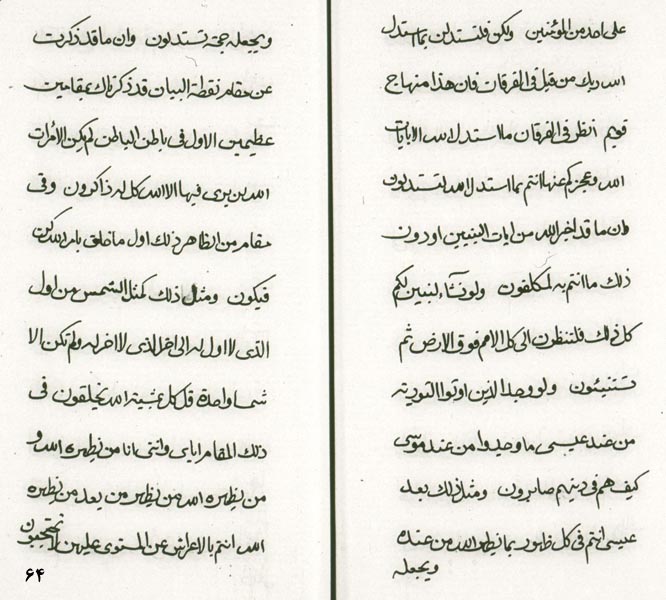 على احد من المؤمنين ولكن فلتستدلن بما استدل
الله ربك من قبل فى الفرقان فان هذا منهاج
قويم انظر فى الفرقان ما استدل الله الا بايات
الله وعجزكم عنها انتم بما استدل الله لتستدلون
وان ما قد اخبر الله من ايات النبيين او دون
ذلك ما انتم به لمكلفون ولو نشاء لنبين لكم
كل ذلك فلتنظرون الى كل الامم فوق الارض ثم
تستنبئون ولو وجد الذين اوتوا التورية
من عند عيسى ما وجدوا من عند موسى
كيف هم فى دينهم صابرون ومثل ذلك بعد
عيسى انتم فى كل ظهور بما يظهر الله من عنده
ويجعله
ويجعله حجة تستدلون وان ما قد ذكرت
عن مقام نقطة البيان قد ذكرناك بمقامين
عظيمين الاول فى باطن الباطن لم يكن الا مرات
الله من يرى فيها الا الله كل له ذاكرون وفى
مقام من الظاهر ذلك اول ما خلق بامر الله كن
فيكون ومثل ذلك كمثل الشمس من اول
الذى لا اول له الى اخر الذى لا اخر له ولم تكن الا
شمسا واحدة قل كل بمشية الله يخلقون فى
ذلك المقام اياى واننى انا من يظهره الله و
من يظهره الله من يظهر من بعد من يظهره
الله انتم بالاعراش عن المستوى عليهن لا تحتجبون
۶۴